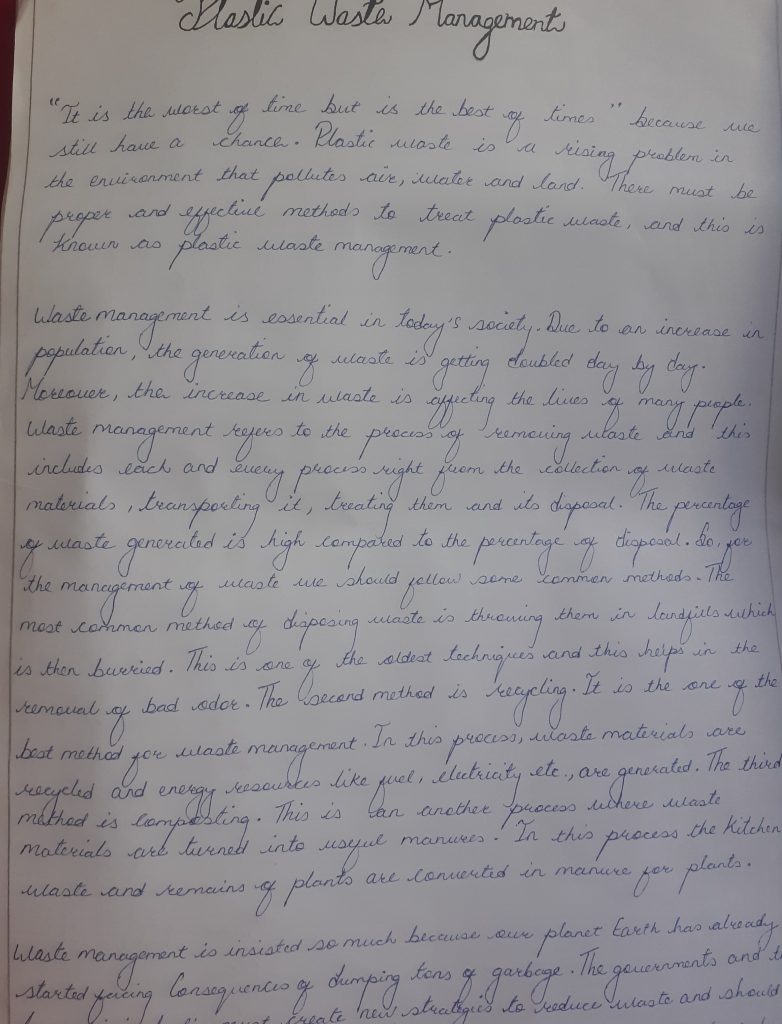 Plastic Waste Management
"It is the worst of time but is the best of times" because we
still have a chance. Plastic waste is a rising problem in
the environment that pollutes air, water and land. There must be
proper and effective methods to treat plastic waste, and this is
known as plastic waste management.
Waste management is essential in today's society. Due to an increase in
population, the generation of waste is getting doubled day by day.
Moreover, the increase in waste is affecting the lives of many people.
Waste management refers to the process of removing waste and this
includes each and every process right from the collection of waste
materials, transporting it, treating them and its disposal. The percentage
of waste generated is high compared to the percentage of disposal. So, for
the management of waste we should follow some common methods. The
most common method of disposing waste is throwing them in landfills which
is then burried. This is one of the oldest techniques and this helps in the
removal of bad odor. The second method is recycling. It is the one of the
best method for waste management. In this process, waste materials are
recycled and energy resources like fuel, electricity etc., are generated. The third
method is composting. This is an another process where waste
materials are turned into useful manures. In this process the kitchen
waste and remains of plants are converted in manure for plants.
Waste management is insisted so much because our planet Earth has already
started facing consequences of dumping tons of garbage. The governments and
create new strategies to reduce waste and should